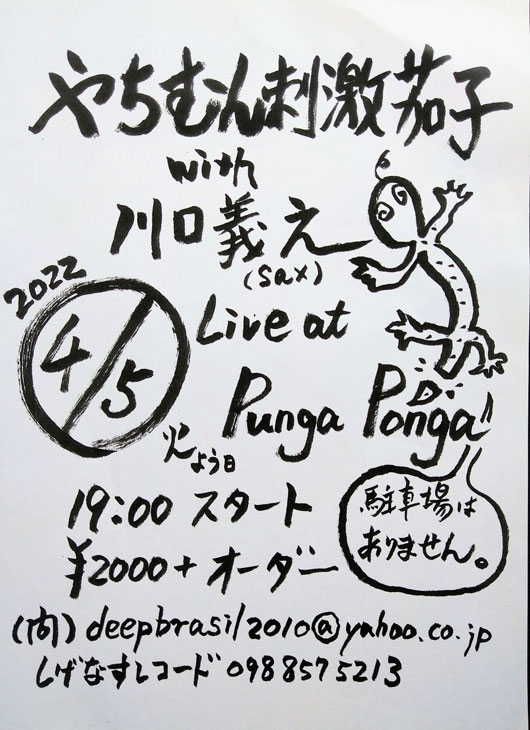 やちむん刺激茄子
with
川口義之
(sax)
2022
4/5
火よう日
Live at
Punga Ponga
19:00 スタート
¥2000+オーダー
駐車場は
ありません。
(問) deepbrasil2010@yahoo.co.jp
しげなすレコード 0988575213